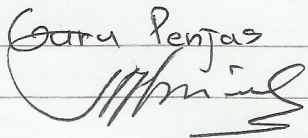 Guru Penjas